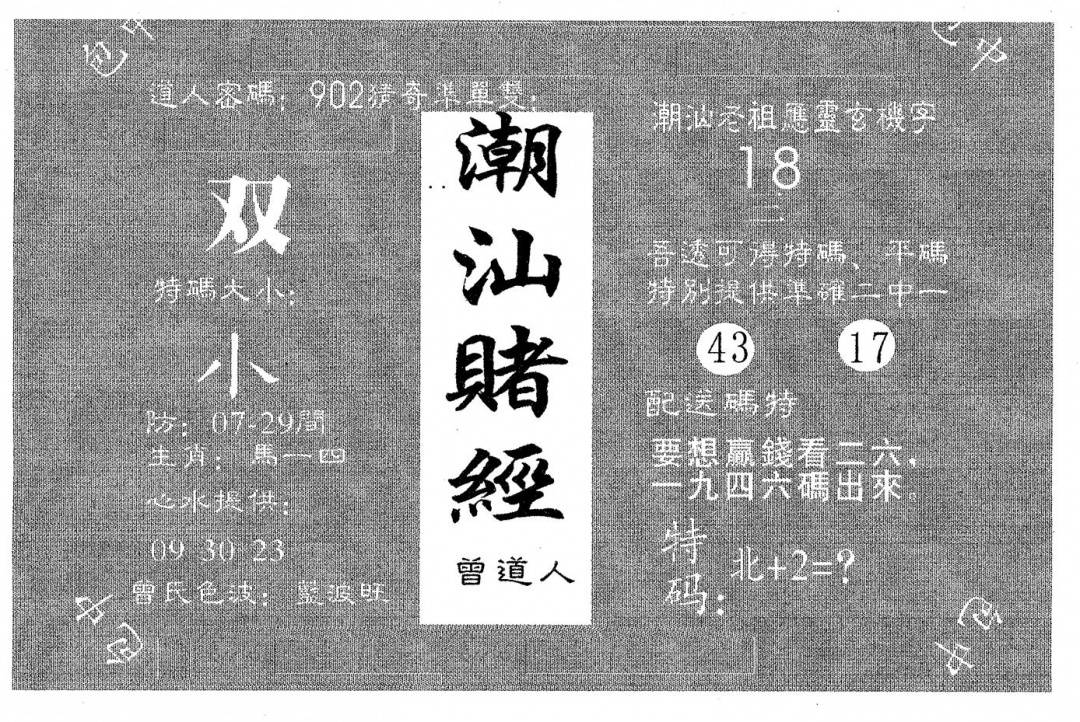 包中
包中
道人密碼：902猜奇準單雙：
双
特碼大小：
小
防：07-29間
生肖：馬一四
心水提供：
09 30 23
曾氏色波：藍波旺
潮汕賭經
曾道人
潮汕老祖應靈玄機字
18
二
吾透可得特碼、平碼
特別提供準確二中一
43 17
配送碼特
要想贏錢看二六，
一九四六碼出來。
特码：
北+2=?
包中
包中